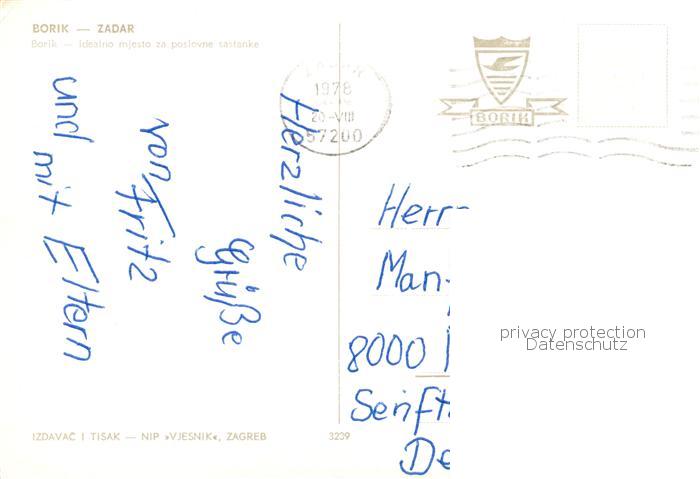 BORIK — ZADAR
Borik — idealno mjesto za poslovne sastanke
1978
20-VIII
57200
BORIK
Herzliche
Grüße
von Fritz
und mit Eltern
Herr
Man
8000
Senft
De
privacy protection
Datenschutz
IZDAVAČ I TISAK — NIP »VJESNIK«, ZAGREB
3239